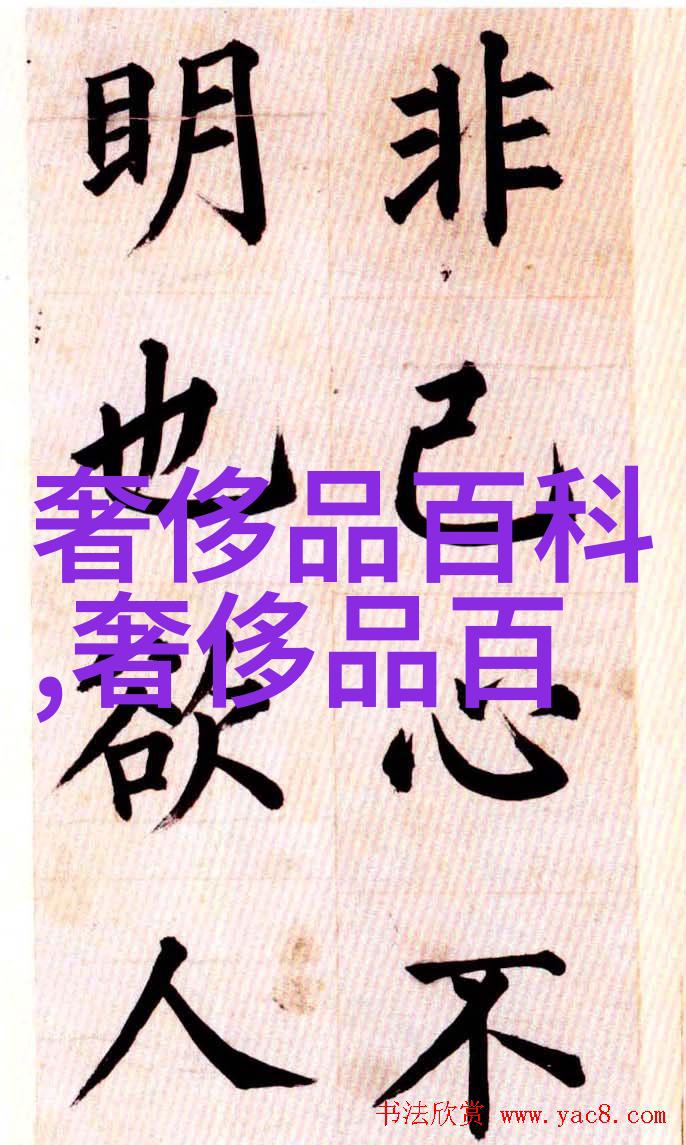 非己心不
明也欲人
奢侈品百科
,奢侈品百
书法欣赏 www.yac8.com